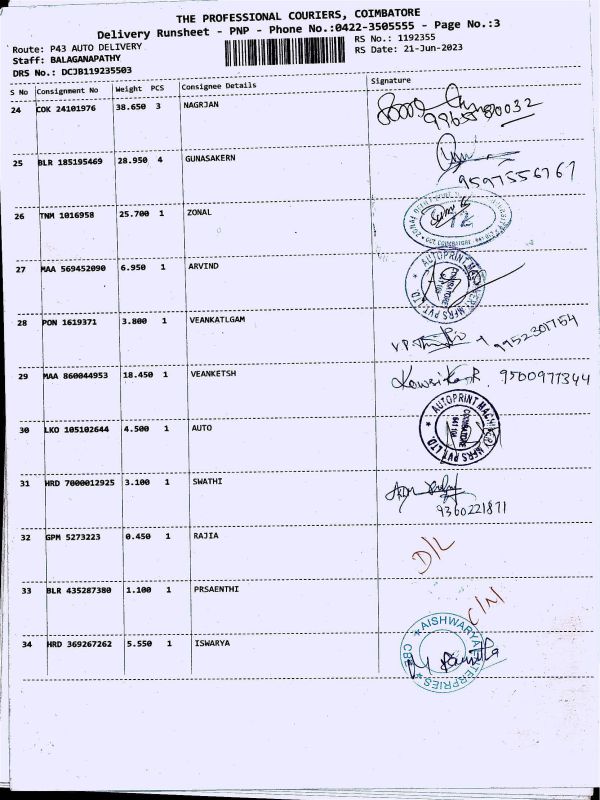 THE PROFESSIONAL COURIERS, COIMBATORE
Delivery Runsheet - PNP - Phone No.:0422-3505555 - Page No.:3
Route: P43 AUTO DELIVERY
RS No.: 1192355
Staff: BALAGANAPATHY
RS Date: 21-Jun-2023
DRS No.: DCJB119235503
S No Consignment No Weight PCS Consignee Details Signature
24 COK 24101976 38.650 3 NAGRJAN
25 BLR 185195469 28.950 4 GUNASAKERN
9597556767
26 TNM 1016958 25.700 1 ZONAL
27 MAA 569452090 6.950 1 ARVIND
AUTOPRINT MACHINERY MFRS PVT LTD.
COIMBATORE
28 PON 1619371 3.800 1 VEANKATLGAM
9952301754
29 MAA 860044953 18.450 1 VEANKETSH
Kowsika.R. 9500977344
30 LKO 105102644 4.500 1 AUTO
AUTOPRINT MACHINERY MFRS PVT LTD.
COIMBATORE
31 HRD 7000012925 3.100 1 SWATHI
9360221871
32 GPM 5273223 0.450 1 RAJIA
D/L
33 BLR 435287380 1.100 1 PRSAENTHI
C/N
34 HRD 369267262 5.550 1 ISWARYA
AISHWARYA ENTERPRIES
CBE